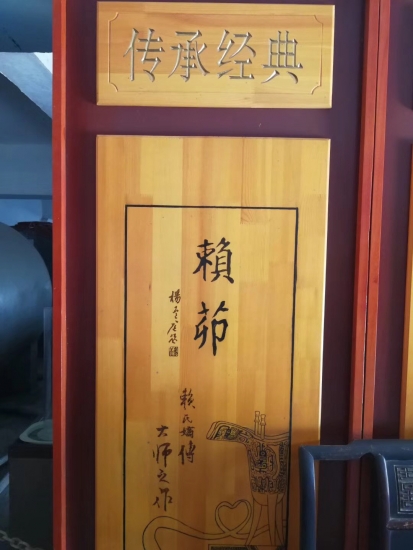 传承经典
賴茆
賴氏嫡傳
大师之作